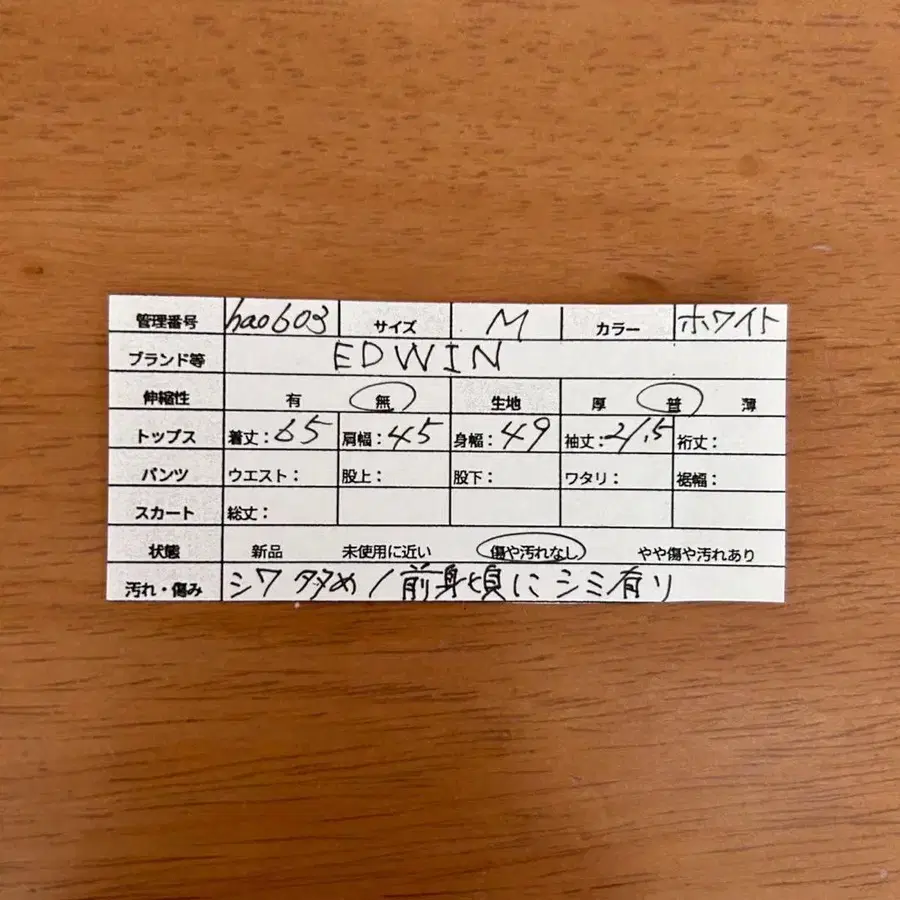 管理番号 hao603 サイズ M カラー ホワイト
ブランド等 EDWIN
伸縮性 有 無 生地 厚 普 薄
トップス 着丈：65 肩幅：45 身幅：49 袖丈：21.5 裄丈：
パンツ ウエスト： 股上： 股下： ワタリ： 裾幅：
スカート 総丈：
状態 新品 未使用に近い 傷や汚れなし やや傷や汚れあり
汚れ・傷み シワ多め/前身頃にシミ有り